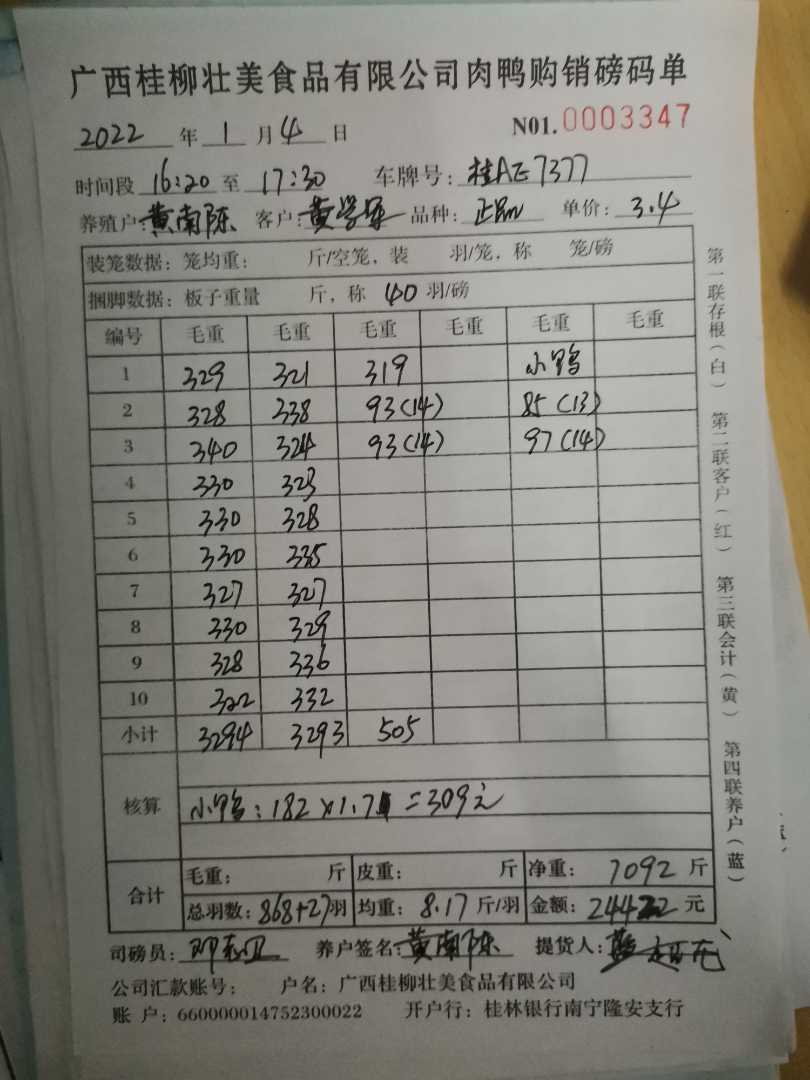 广西桂柳壮美食品有限公司肉鸭购销磅码单
2022 年 1 月 4 日 N01.0003347
时间段 16:20 至 17:30 车牌号: 桂AZ7377
养殖户: 黄南陈 客户: 黄学军 品种: 正品 单价: 3.4
装笼数据: 笼均重: 斤/空笼, 装 羽/笼, 称 笼/磅
捆脚数据: 板子重量 斤, 称 40 羽/磅
编号 毛重 毛重 毛重 毛重 毛重 毛重
1 329 321 319 小鸭
2 328 338 93(14) 85(13)
3 340 324 93(14) 97(14)
4 330 323
5 330 328
6 330 335
7 327 327
8 330 329
9 328 336
10 322 332
小计 3294 3293 505
核算 小鸭: 182×1.7=309元
合计 毛重: 斤 皮重: 斤 净重: 7092 斤
总羽数: 868+27羽 均重: 8.17 斤/羽 金额: 24422 元
司磅员: 养户签名: 黄南陈 提货人:
公司汇款账号: 户名: 广西桂柳壮美食品有限公司
账 户: 660000014752300022 开户行: 桂林银行南宁隆安支行
第一联存根(白) 第二联客户(红) 第三联会计(黄) 第四联养户(蓝)